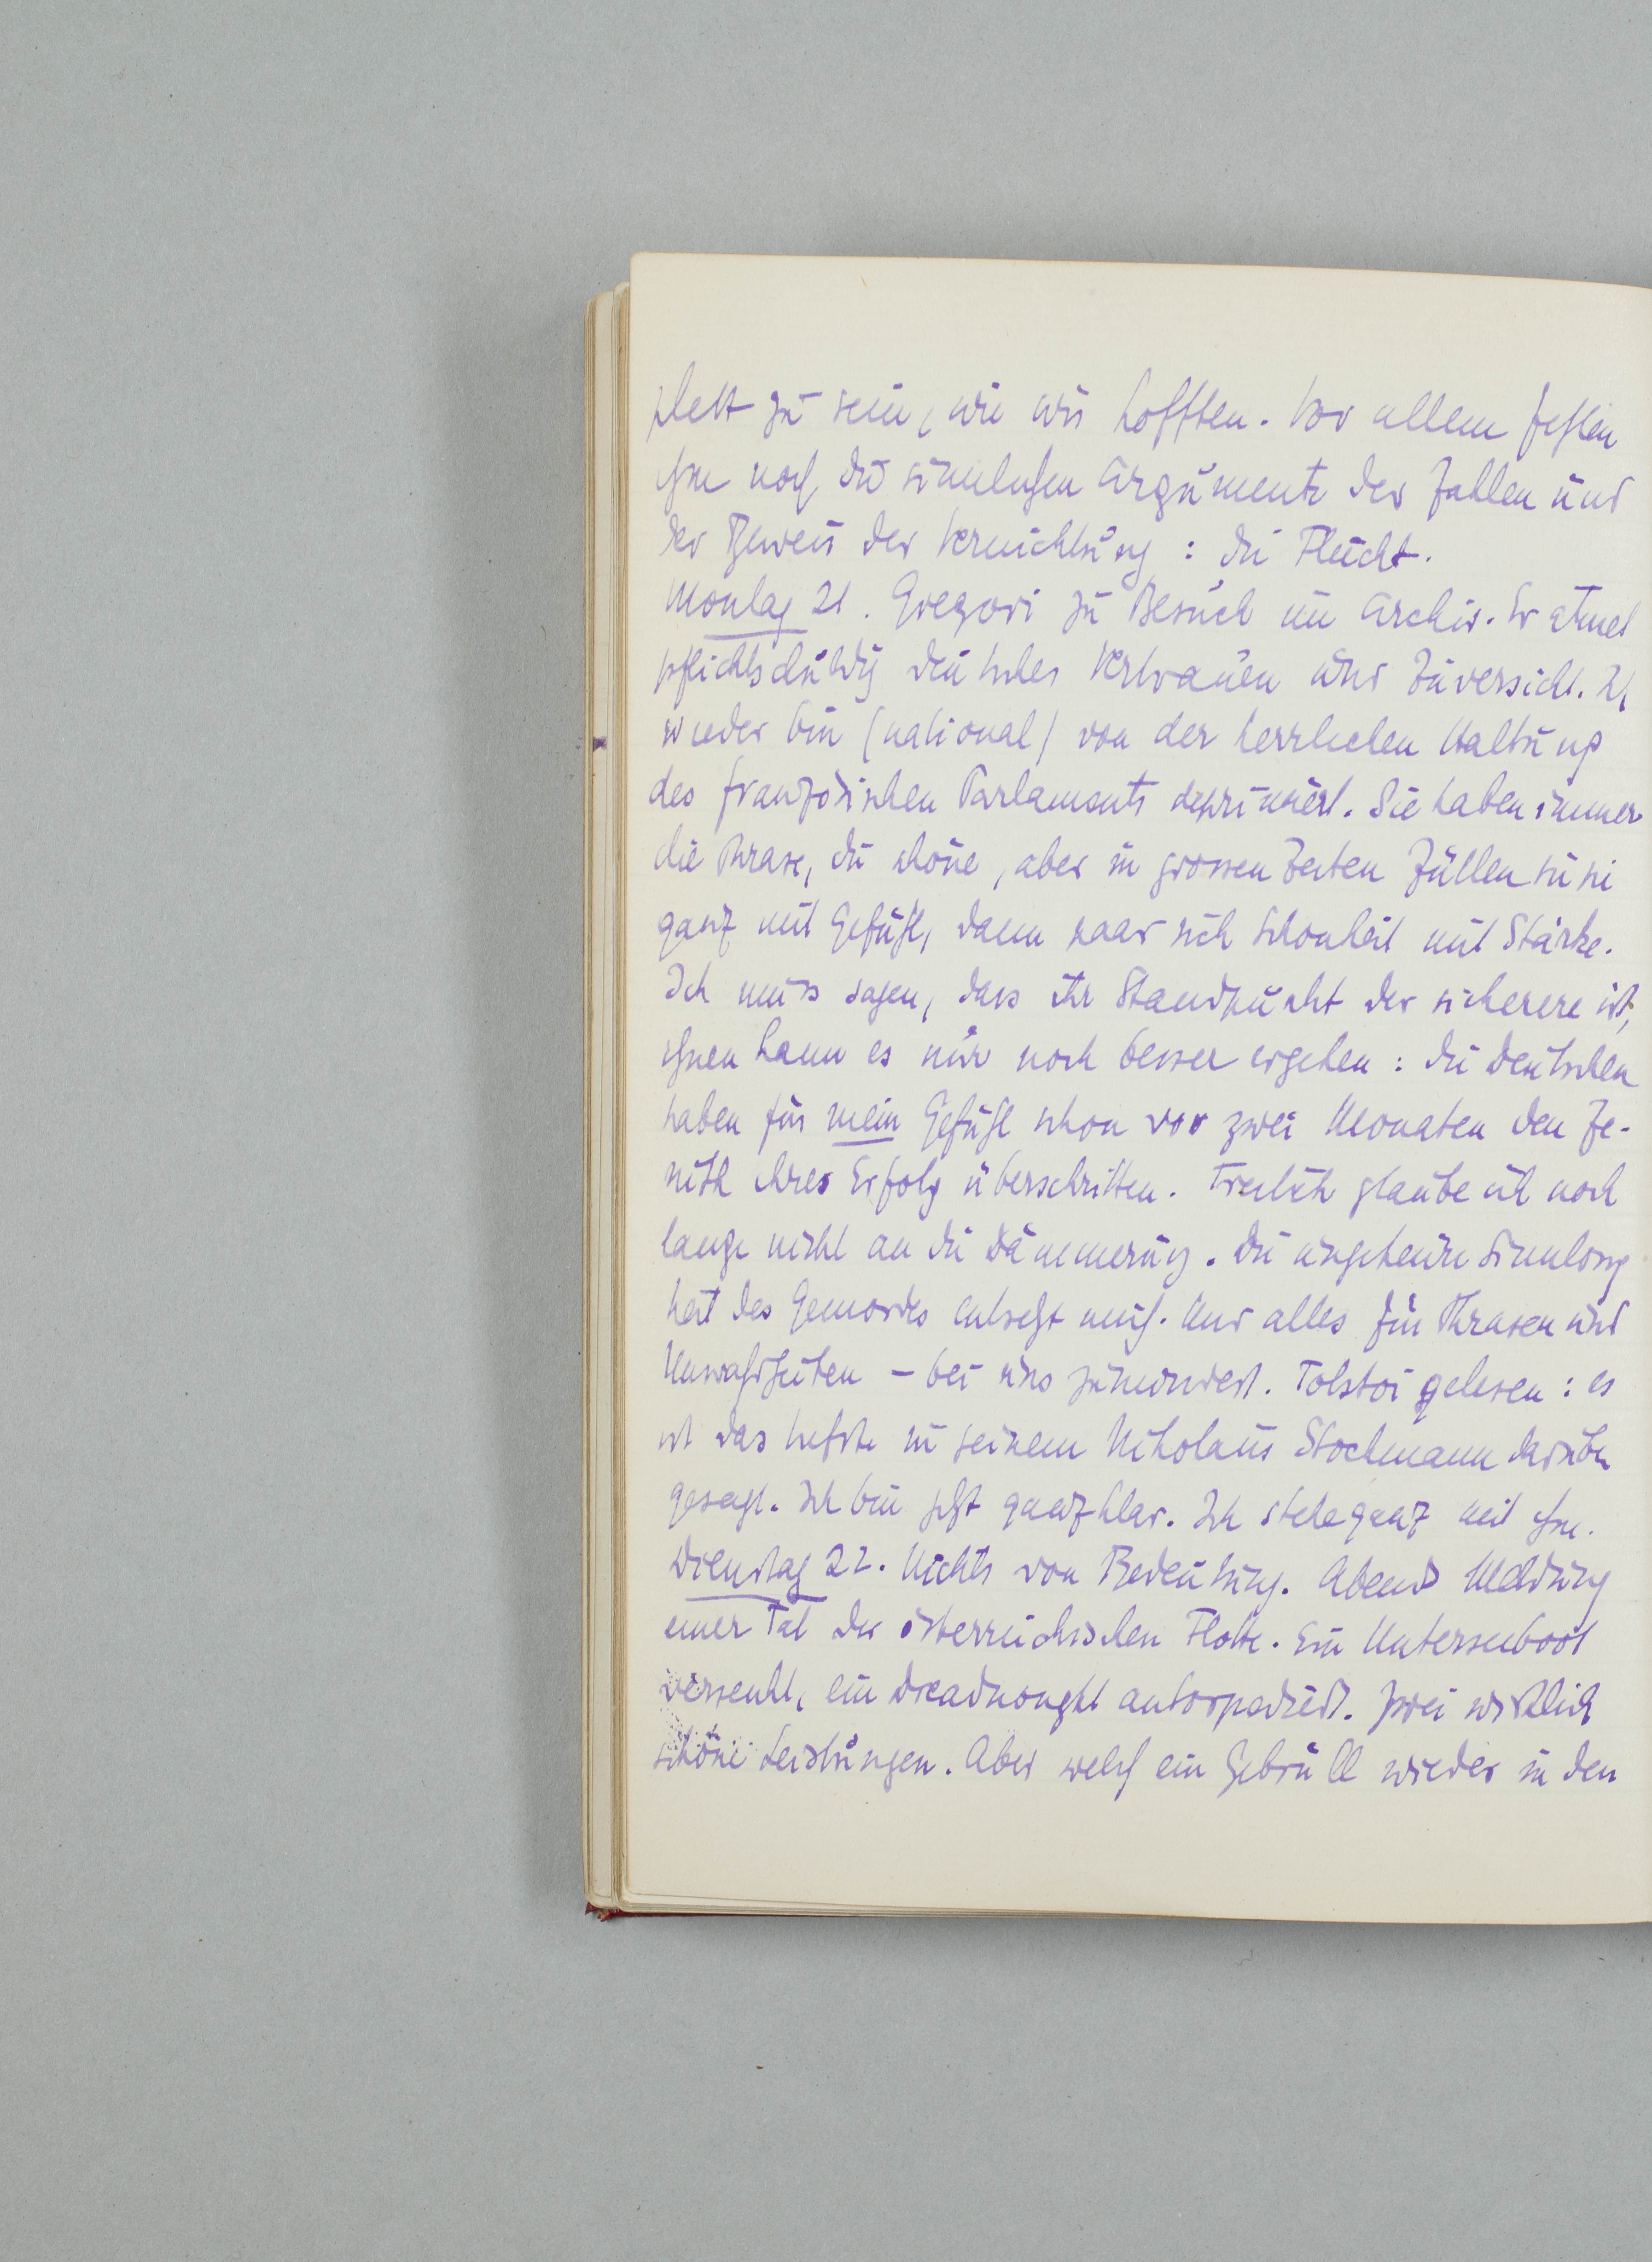 plett zu sein, wie wir hofften. Vor allem fehlen
ihm noch die sinnlichen Argumente der Zahlen und
der Beweis der Vernichtung: die Flucht.
Montag 21. Gregori zu Besuch im Archiv. Er atmet
pflichtschuldig deutsches Vertrauen und Zuversicht. Ich
wieder bin (national) von der herrlichen Haltung
des französischen Parlaments deprimiert. Sie haben immer
die Phrase, die schöne, aber in grossen Zeiten füllen sie sie
ganz mit Gefühl, dann paar sich Schönheit mit Stärke.
Ich muss sagen, dass ihr Standpunkt der sicherere ist,
ihnen kann es nur noch besser ergehen: die Deutschen
haben für mein Gefühl schon vor zwei Monaten den Ze-
nith ihres Erfolg überschritten. Freilich glaube ich noch
lange nicht an die Dämmerung. Die ungeheure Sinnlosig
keit des Gemordes entsetzt mich. Und alles für Phrasen und
Unwahrheiten – bei uns zumindest. Tolstoi gelesen: es
ist das tiefste in seinem Nikolaus Stockmann darüber
gesagt. Ich bin jetzt ganz klar. Ich stehe ganz mit ihm.
Dienstag 22. Nichts von Bedeutung. Abends Meldung
einer Tat der österreichischen Flotte. Ein Unterseeboot
versenkt, ein Dreadnought antorpediert. Zwei wirklich
schöne Leistungen. Aber welch ein Gebrüll wieder in den